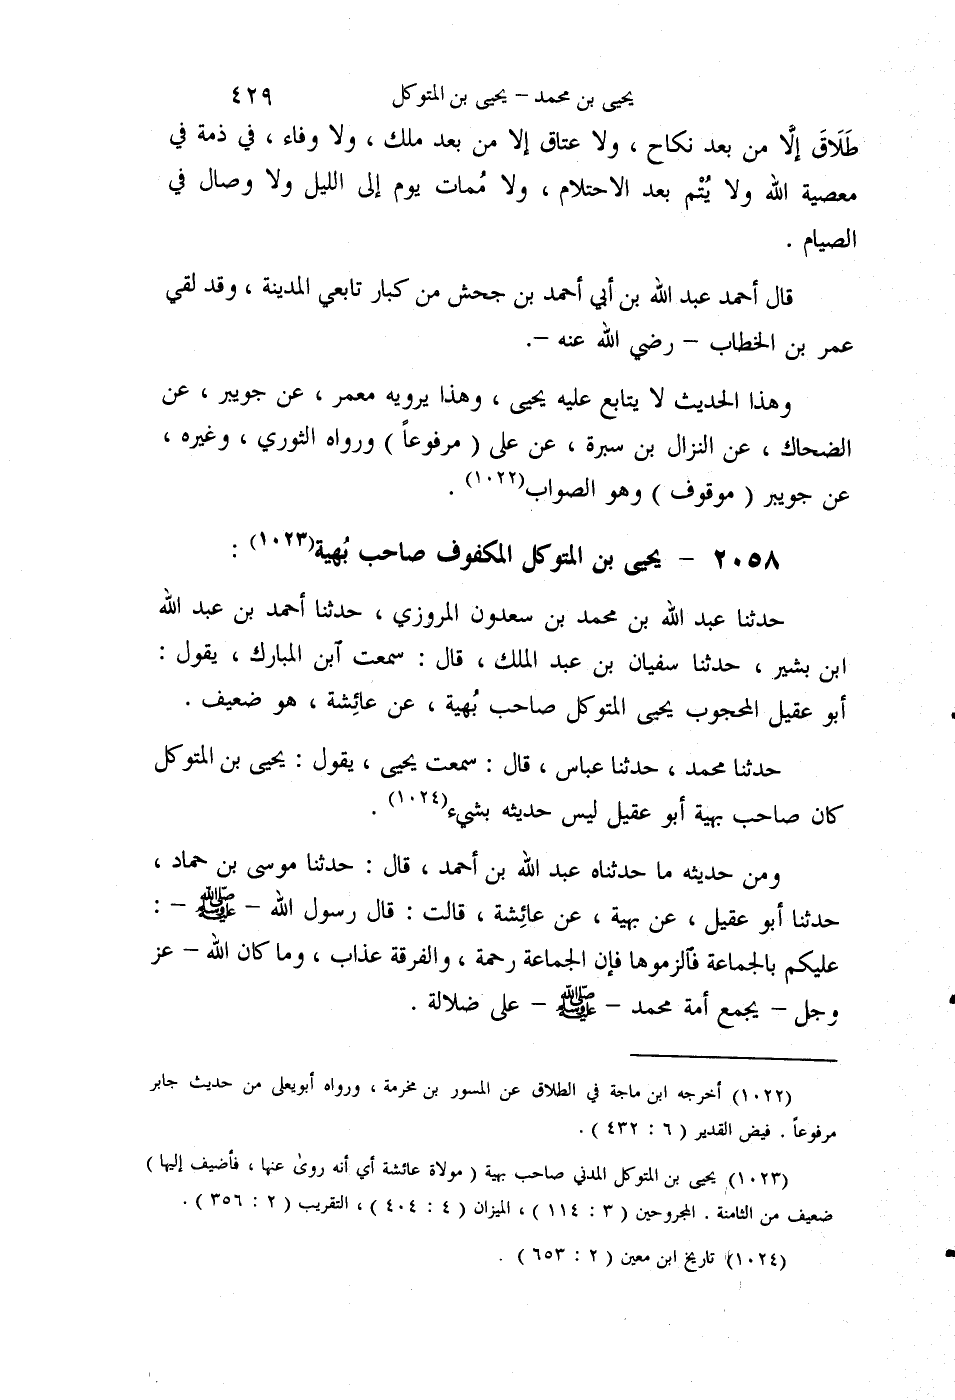 يحيى بن محمد – يحيى بن المتوكل ٤٢٩
طَلَاقَ إلَّا من بعد نكاح ، ولا عتاق إلا من بعد ملك ، ولا وفاء ، في ذمة في
معصية الله ولا يُتْم بعد الاحتلام ، ولا مُمات يوم إلى الليل ولا وصال في
الصيام .
قال أحمد عبد الله بن أبي أحمد بن جحش من كبار تابعي المدينة ، وقد لقي
عمر بن الخطاب – رضي الله عنه –.
وهذا الحديث لا يتابع عليه يحيى ، وهذا يرويه معمر ، عن جويبر ، عن
الضحاك ، عن النزال بن سبرة ، عن على ( مرفوعاً ) ورواه الثوري ، وغيره ،
عن جويبر ( موقوف ) وهو الصواب(١٠٢٢) .
٢٠٥٨ – يحيى بن المتوكل المكفوف صاحب بُهية(١٠٢٣) :
حدثنا عبد الله بن محمد بن سعدون المروزي ، حدثنا أحمد بن عبد الله
ابن بشير ، حدثنا سفيان بن عبد الملك ، قال : سمعت آبن المبارك ، يقول :
أبو عقيل المحجوب يحيى المتوكل صاحب بُهية ، عن عائِشة ، هو ضعيف .
حدثنا محمد ، حدثنا عباس ، قال : سمعت يحيى ، يقول : يحيى بن المتوكل
كان صاحب بهية أبو عقيل ليس حديثه بشيء(١٠٢٤) .
ومن حديثه ما حدثناه عبد الله بن أحمد ، قال : حدثنا موسى بن حماد ،
حدثنا أبو عقيل ، عن بهية ، عن عائِشة ، قالت : قال رسول الله – ﷺ – :
عليكم بالجماعة فآلزموها فإن الجماعة رحمة ، والفرقة عذاب ، وما كان الله – عز
وجل – يجمع أمة محمد – ﷺ – على ضلالة .
(١٠٢٢) أخرجه ابن ماجة في الطلاق عن المسور بن مخرمة ، ورواه أبويعلى من حديث جابر
مرفوعاً . فيض القدير ( ٦ : ٤٣٢ ) .
(١٠٢٣) يحيى بن المتوكل المدني صاحب بهية ( مولاة عائشة أي أنه روىٰ عنها ، فأضيف إليها )
ضعيف من الثامنة . المجروحين ( ٣ : ١١٤ ) ، الميزان ( ٤ : ٤٠٤ ) ، التقريب ( ٢ : ٣٥٦ ) .
(١٠٢٤) تاريخ ابن معين ( ٢ : ٦٥٣ ) .